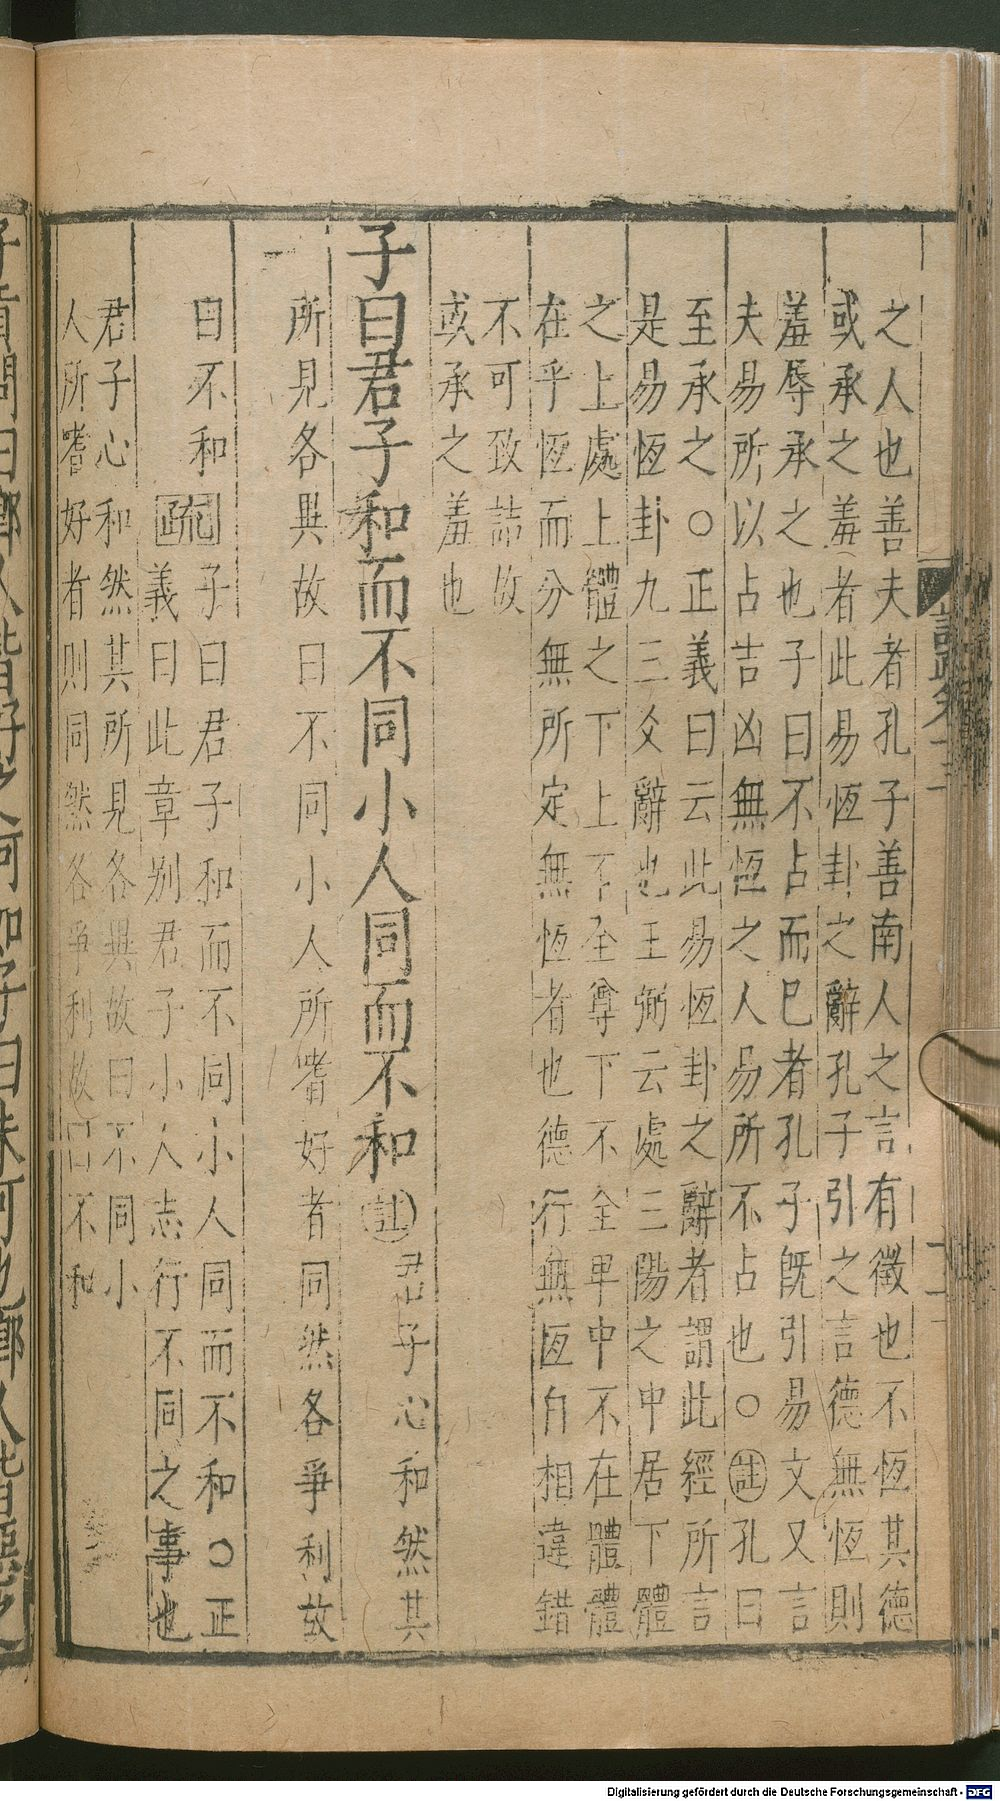 之人也善夫者孔子善南人之言有徵也不恆其德
或承之羞者此易恆卦之辭孔子引之言德無恆則
羞辱承之也子曰不占而巳者孔子既引易文又言
夫易所以占吉凶無恆之人易所不占也○註孔曰
至承之○正義曰云此易恆卦之辭者謂此經所言
是易恆卦九三爻辭也王弼云處三陽之中居下體
之上處上體之下上不全尊下不全卑中不在體體
在乎恆而分無所定無恆者也德行無恆自相違錯
不可致詰故
或承之羞也
子曰君子和而不同小人同而不和註君子心和然其
所見各異故曰不同小人所嗜好者同然各爭利故
曰不和疏子曰君子和而不同小人同而不和○正
義曰此章別君子小人志行不同之事也
君子心和然其所見各異故曰不同小
人所嗜好者則同然各爭利故曰不和
子貢問曰鄉人皆好之何如子曰未可也鄉人皆惡之
Digitalisierung gefördert durch die Deutsche Forschungsgemeinschaft - DFG